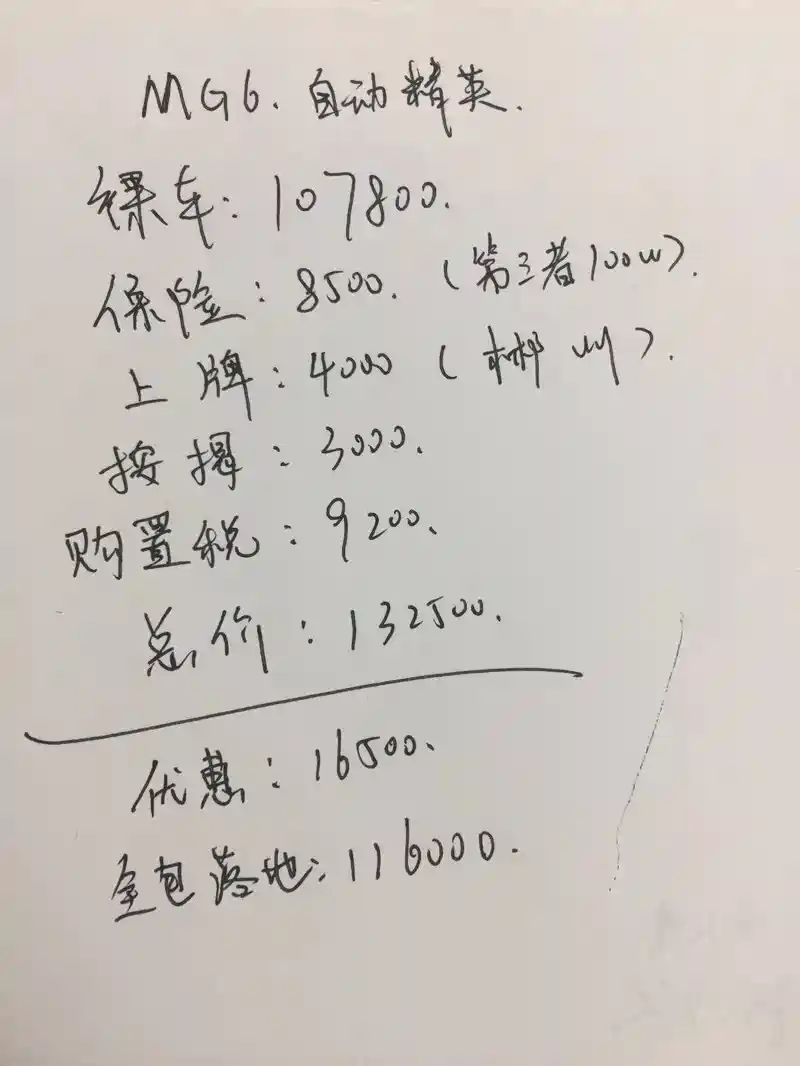 MG6. 自动精英.
裸车: 107800.
保险: 8500. (第三者100W).
上牌: 4000 (郴州).
按揭: 3000.
购置税: 9200.
总价: 132500.
优惠: 16500.
全包落地: 116000.